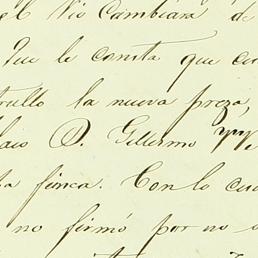 el Río Cambiará de
Que le consta que
la nueva presa,
D. Gillermo
finca. Con lo cu
no firmó por no